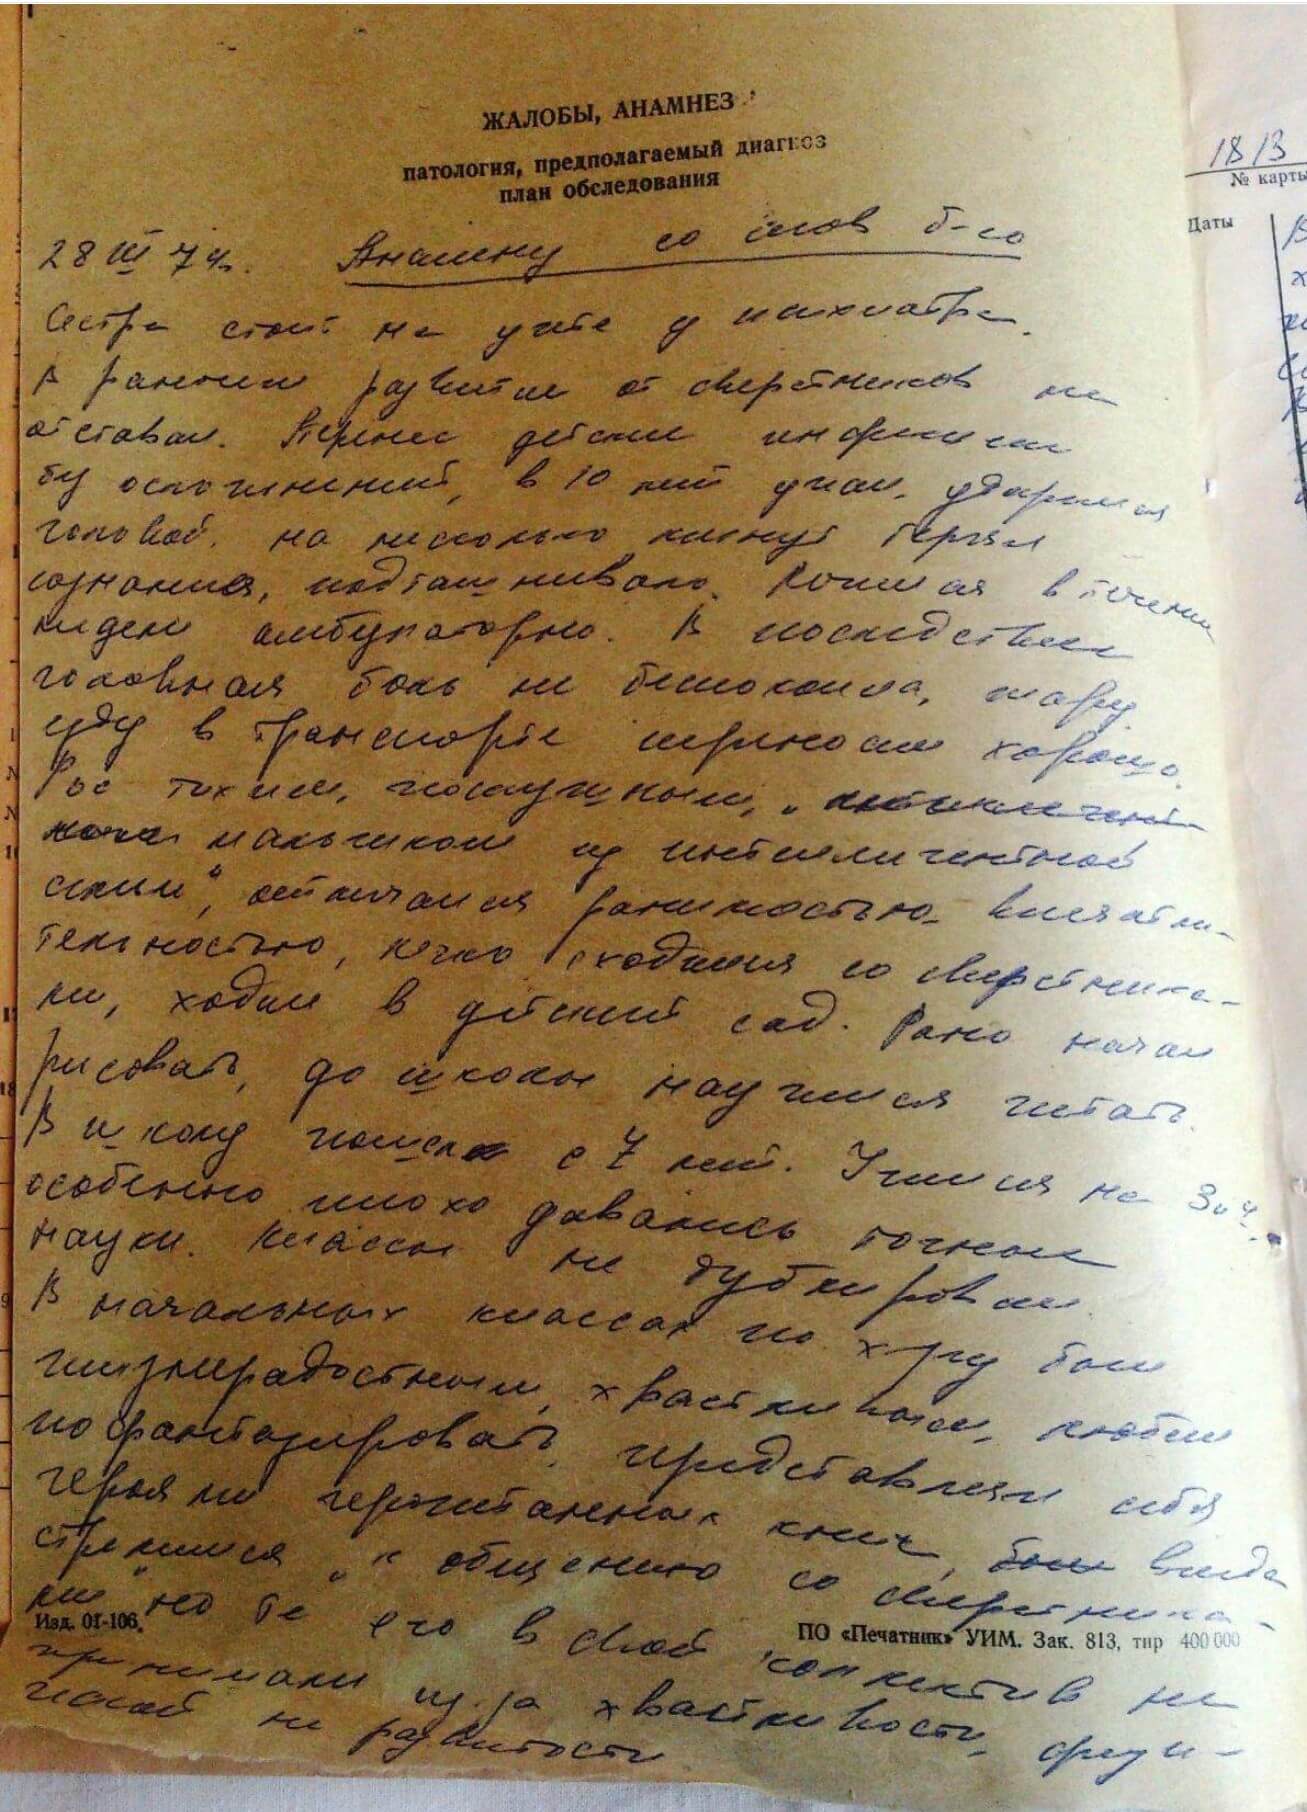 ЖАЛОБЫ, АНАМНЕЗ
патология, предполагаемый диагноз
план обследования
1813
№ карты
Даты
28 III 74г. Анамнез со слов б-го
Сестра стоит на учете у психиатра.
В раннем развитии от сверстников не
отставал. Перенес детские инфекции
без осложнений, в 10 лет упал, ударился
головой, на несколько минут терял
сознание, подташнивало. Лечился в течении
недели амбулаторно. В последствии
головная боль не беспокоила, жару,
езду в транспорте переносил хорошо.
Рос тихим, послушным, „интеллигент
мальчиком из интеллигентной
семьи“, отличался ранимостью, впечатли-
тельностью, легко сходился со сверстника-
ми, ходил в детский сад. Рано начал
рисовать, до школы научился читать.
В школу пошел с 7 лет. Учился на 3 и 4,
особенно плохо давались точные
науки. Классы не дублировал.
В начальных классах по х-ру был
жизнерадостным, хвастливым, любил
пофантазировать, представлял себя
героями прочитанных книг, был всегда
стремился „к общению со сверстника-
ми“ но те его в свой коллектив не
Изд. 01-106.
ПО «Печатник» УИМ. Зак. 813, тир 400 000
принимали из-за хвастливости, физи-
ческой не развитости